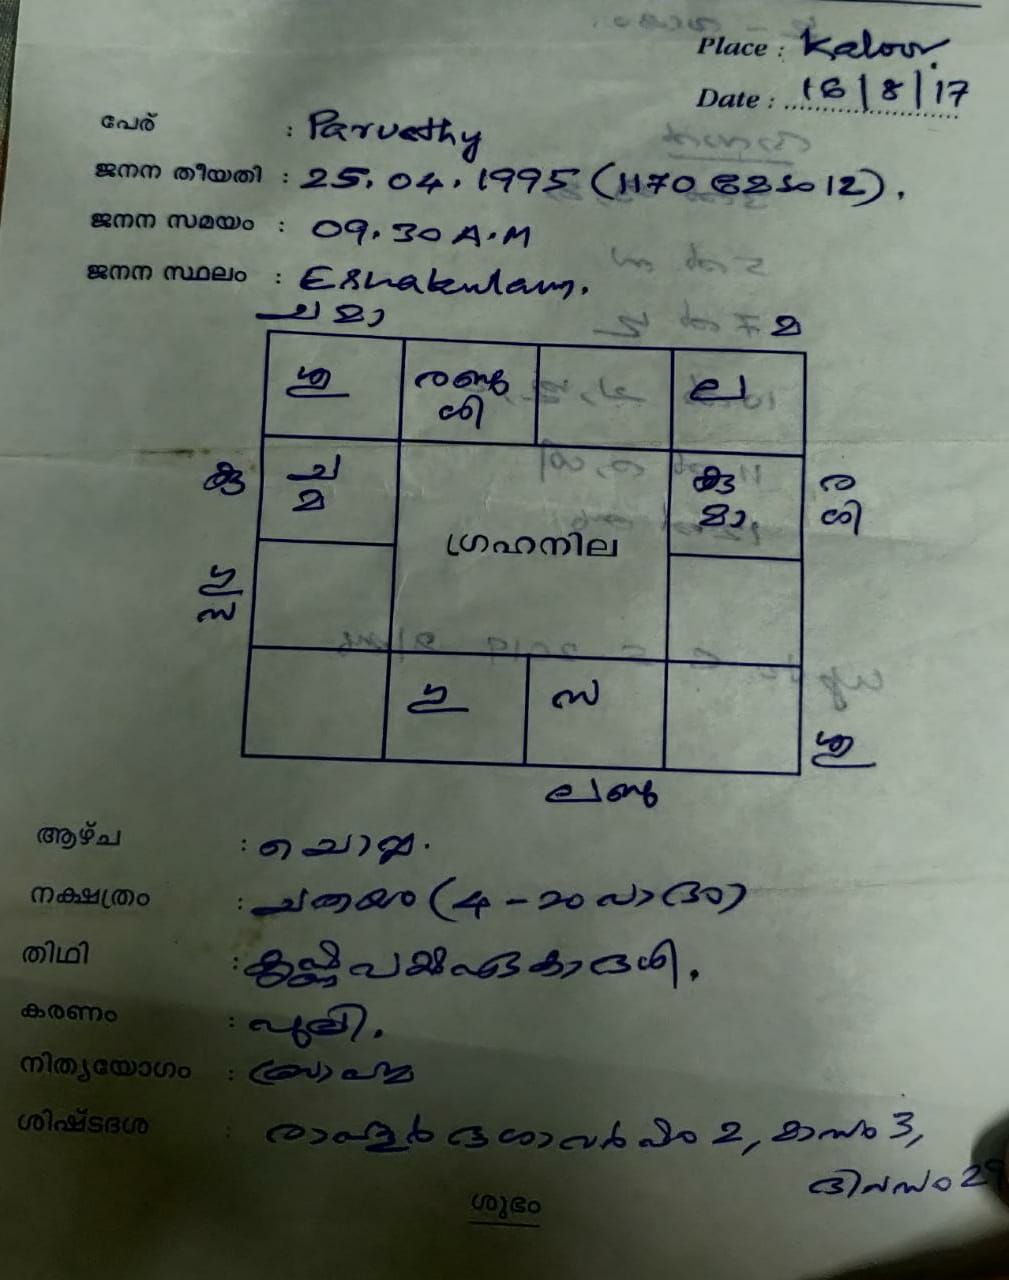 Place : Kaloor.
Date : 16/8/17
പേര് : Parvathy
ജനന തീയതി : 25.04.1995 (1170 മേടം 12).
ജനന സമയം : 09.30 A.M
ജനന സ്ഥലം : Ernakulam.
ച മാ
മ
ശു
ര
ശി
ല
കു
ച
മ
കു
മാ
ര
ശി
ഗ്രഹനില
ഗു
സ
ഗു
സ
ശു
ല
ആഴ്ച : ചൊവ്വ.
നക്ഷത്രം : ചതയം (4-ാം പാദം)
തിഥി : കൃഷ്ണപക്ഷ ഏകാദശി.
കരണം : പുലി.
നിത്യയോഗം : ബ്രാഹ്മ
ശിഷ്ടദശ : രാഹുർ ദശാവർഷം 2, മാസം 3,
ദിവസം 29
ശുഭം